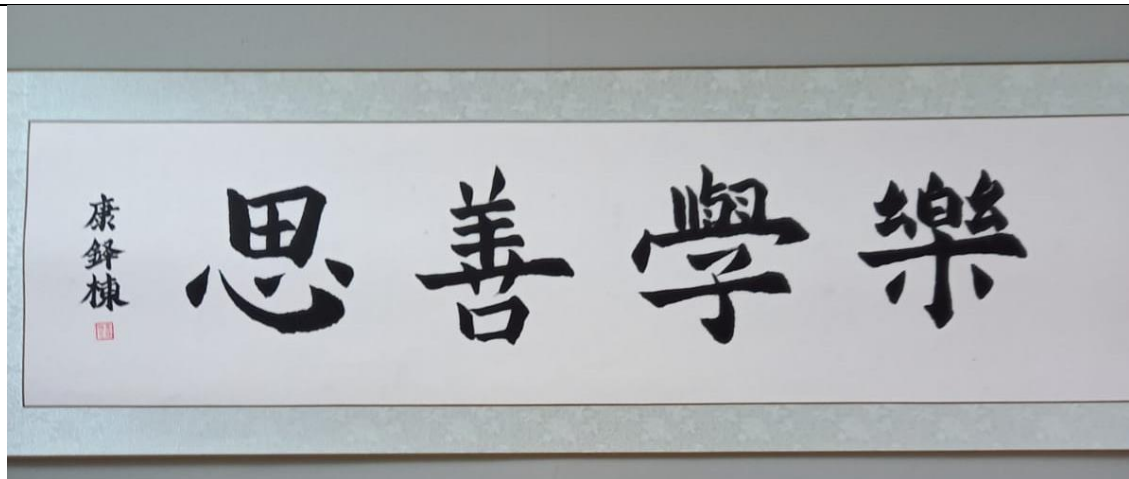 樂學善思
康鐸棟